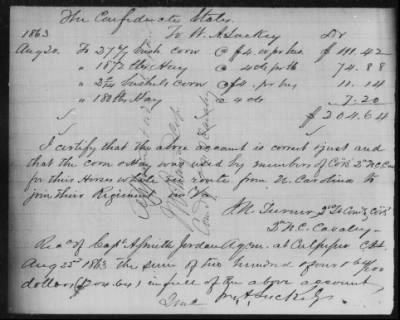 The Confederate States
1863 To W. A. Luckey Dr
Aug 20. To bush corn @ $4.00 per bus $ 111.42
" 1872 lbs Hay @ 4 cts per lb 74.88
" bushels corn @ $4. per bus 11.14
" 180 lbs Hay @ 4 cts 7.20
$ 204.64
I certify that the above account is correct & just and
that the corn & Hay was used by members of Co K 2d N.C. Cav
for their Horses while en route from N. Carolina to
join their Regiment in Va
J. M. Turner Co K
2d N.C. Cavalry
Rec'd of Capt A Smith Jordan Aqcm. at Culpeper C.H.
Aug 25th 1863 the sum of two hundred & four & 64/100
dollars ($204.64) in full of the above account
W. A. Luckey